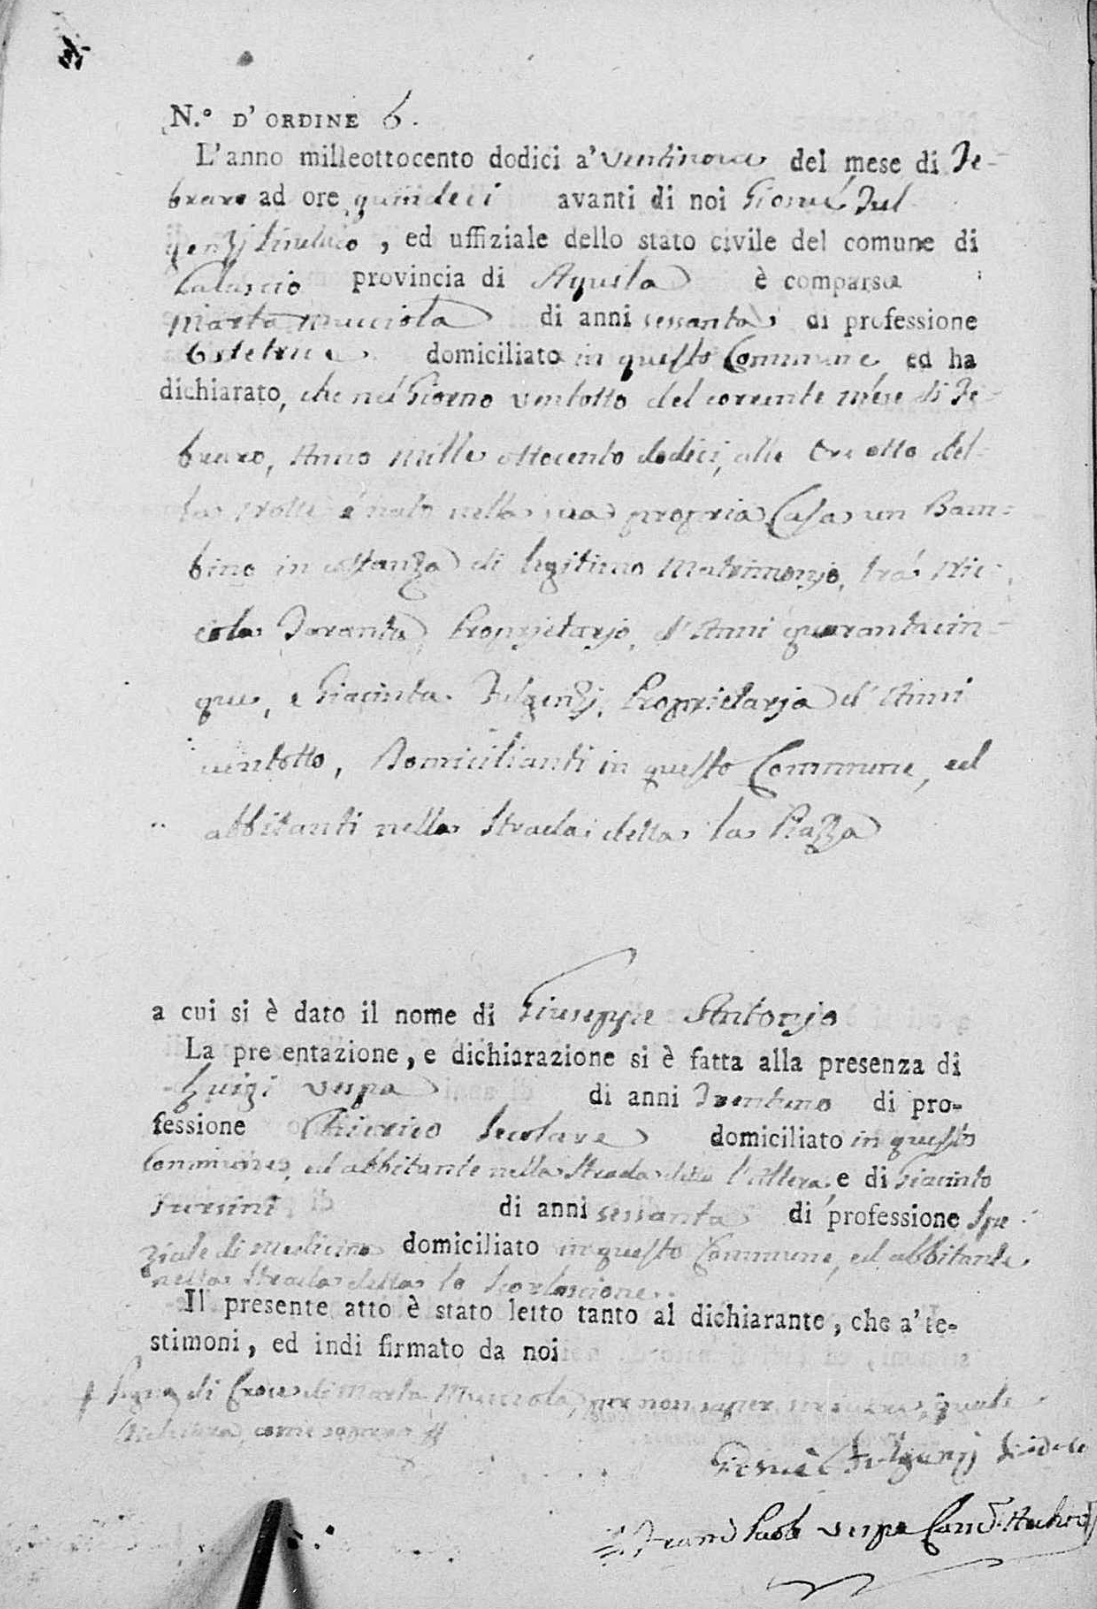 N.º D' ORDINE 6.
L'anno milleottocento dodici a' ventinove del mese di Fe-
braro ad ore quindeci avanti di noi Giosuè Ful
genzj Sindaco, ed uffiziale dello stato civile del comune di
Calascio provincia di Aquila è comparsa
Marta Mucciola di anni sessanta di professione
Ostetrice domiciliato in questo Commune ed ha
dichiarato, che nel Giorno ventotto del corrente mese di Fe-
braro, Anno Mille ottocento dodici, alle ore otto del-
la Notte è nato nella sua propria Casa un Bam-
bino in costanza di legitimo Matrimonjo, trà Nic-
cola Taranta, Proprietarjo, d'Anni quarantacin-
que, e Giacinta Fulgenzj, Proprietarja d'Anni
ventotto, Domicilianti in questo Commune, ed
abbitanti nella Strada detta la Piazza
a cui si è dato il nome di Giuseppe Antonjo
La pre entazione, e dichiarazione si è fatta alla presenza di
Luigi Vespa di anni Trentuno di pro-
fessione Chierico Secolare domiciliato in questo
Commune, ed abbitante nella Strada detta e di Giacinto
di anni sessanta di professione Spe
ziale di Medicina domiciliato in questo Commune, ed abbitante
nella Strada detta lo
Il presente atto è stato letto tanto al dichiarante, che a' te-
stimoni, ed indi firmato da noi
Segno di Croce di Marta Mucciola, per non saper scrivere, quale
come sopra
Giosuè Fulgenzj Sindaco
Paolo Vespa